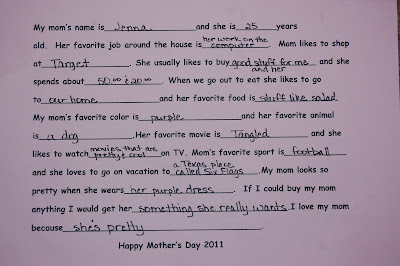 My mom's name is Jenna and she is 25 years
old. Her favorite job around the house is her work on the computer. Mom likes to shop
at Target. She usually likes to buy good stuff for me and her and she
spends about 50.00 & 20.00. When we go out to eat she likes to go
to our home and her favorite food is stuff like salad
My mom's favorite color is purple and her favorite animal
is a dog. Her favorite movie is Tangled and she
likes to watch movies that are pretty & cool on TV. Mom's favorite sport is football
and she loves to go on vacation to a Texas place called Six Flags. My mom looks so
pretty when she wears her purple dress. If I could buy my mom
anything I would get her something she really wants. I love my mom
because she's pretty.
Happy Mother's Day 2011